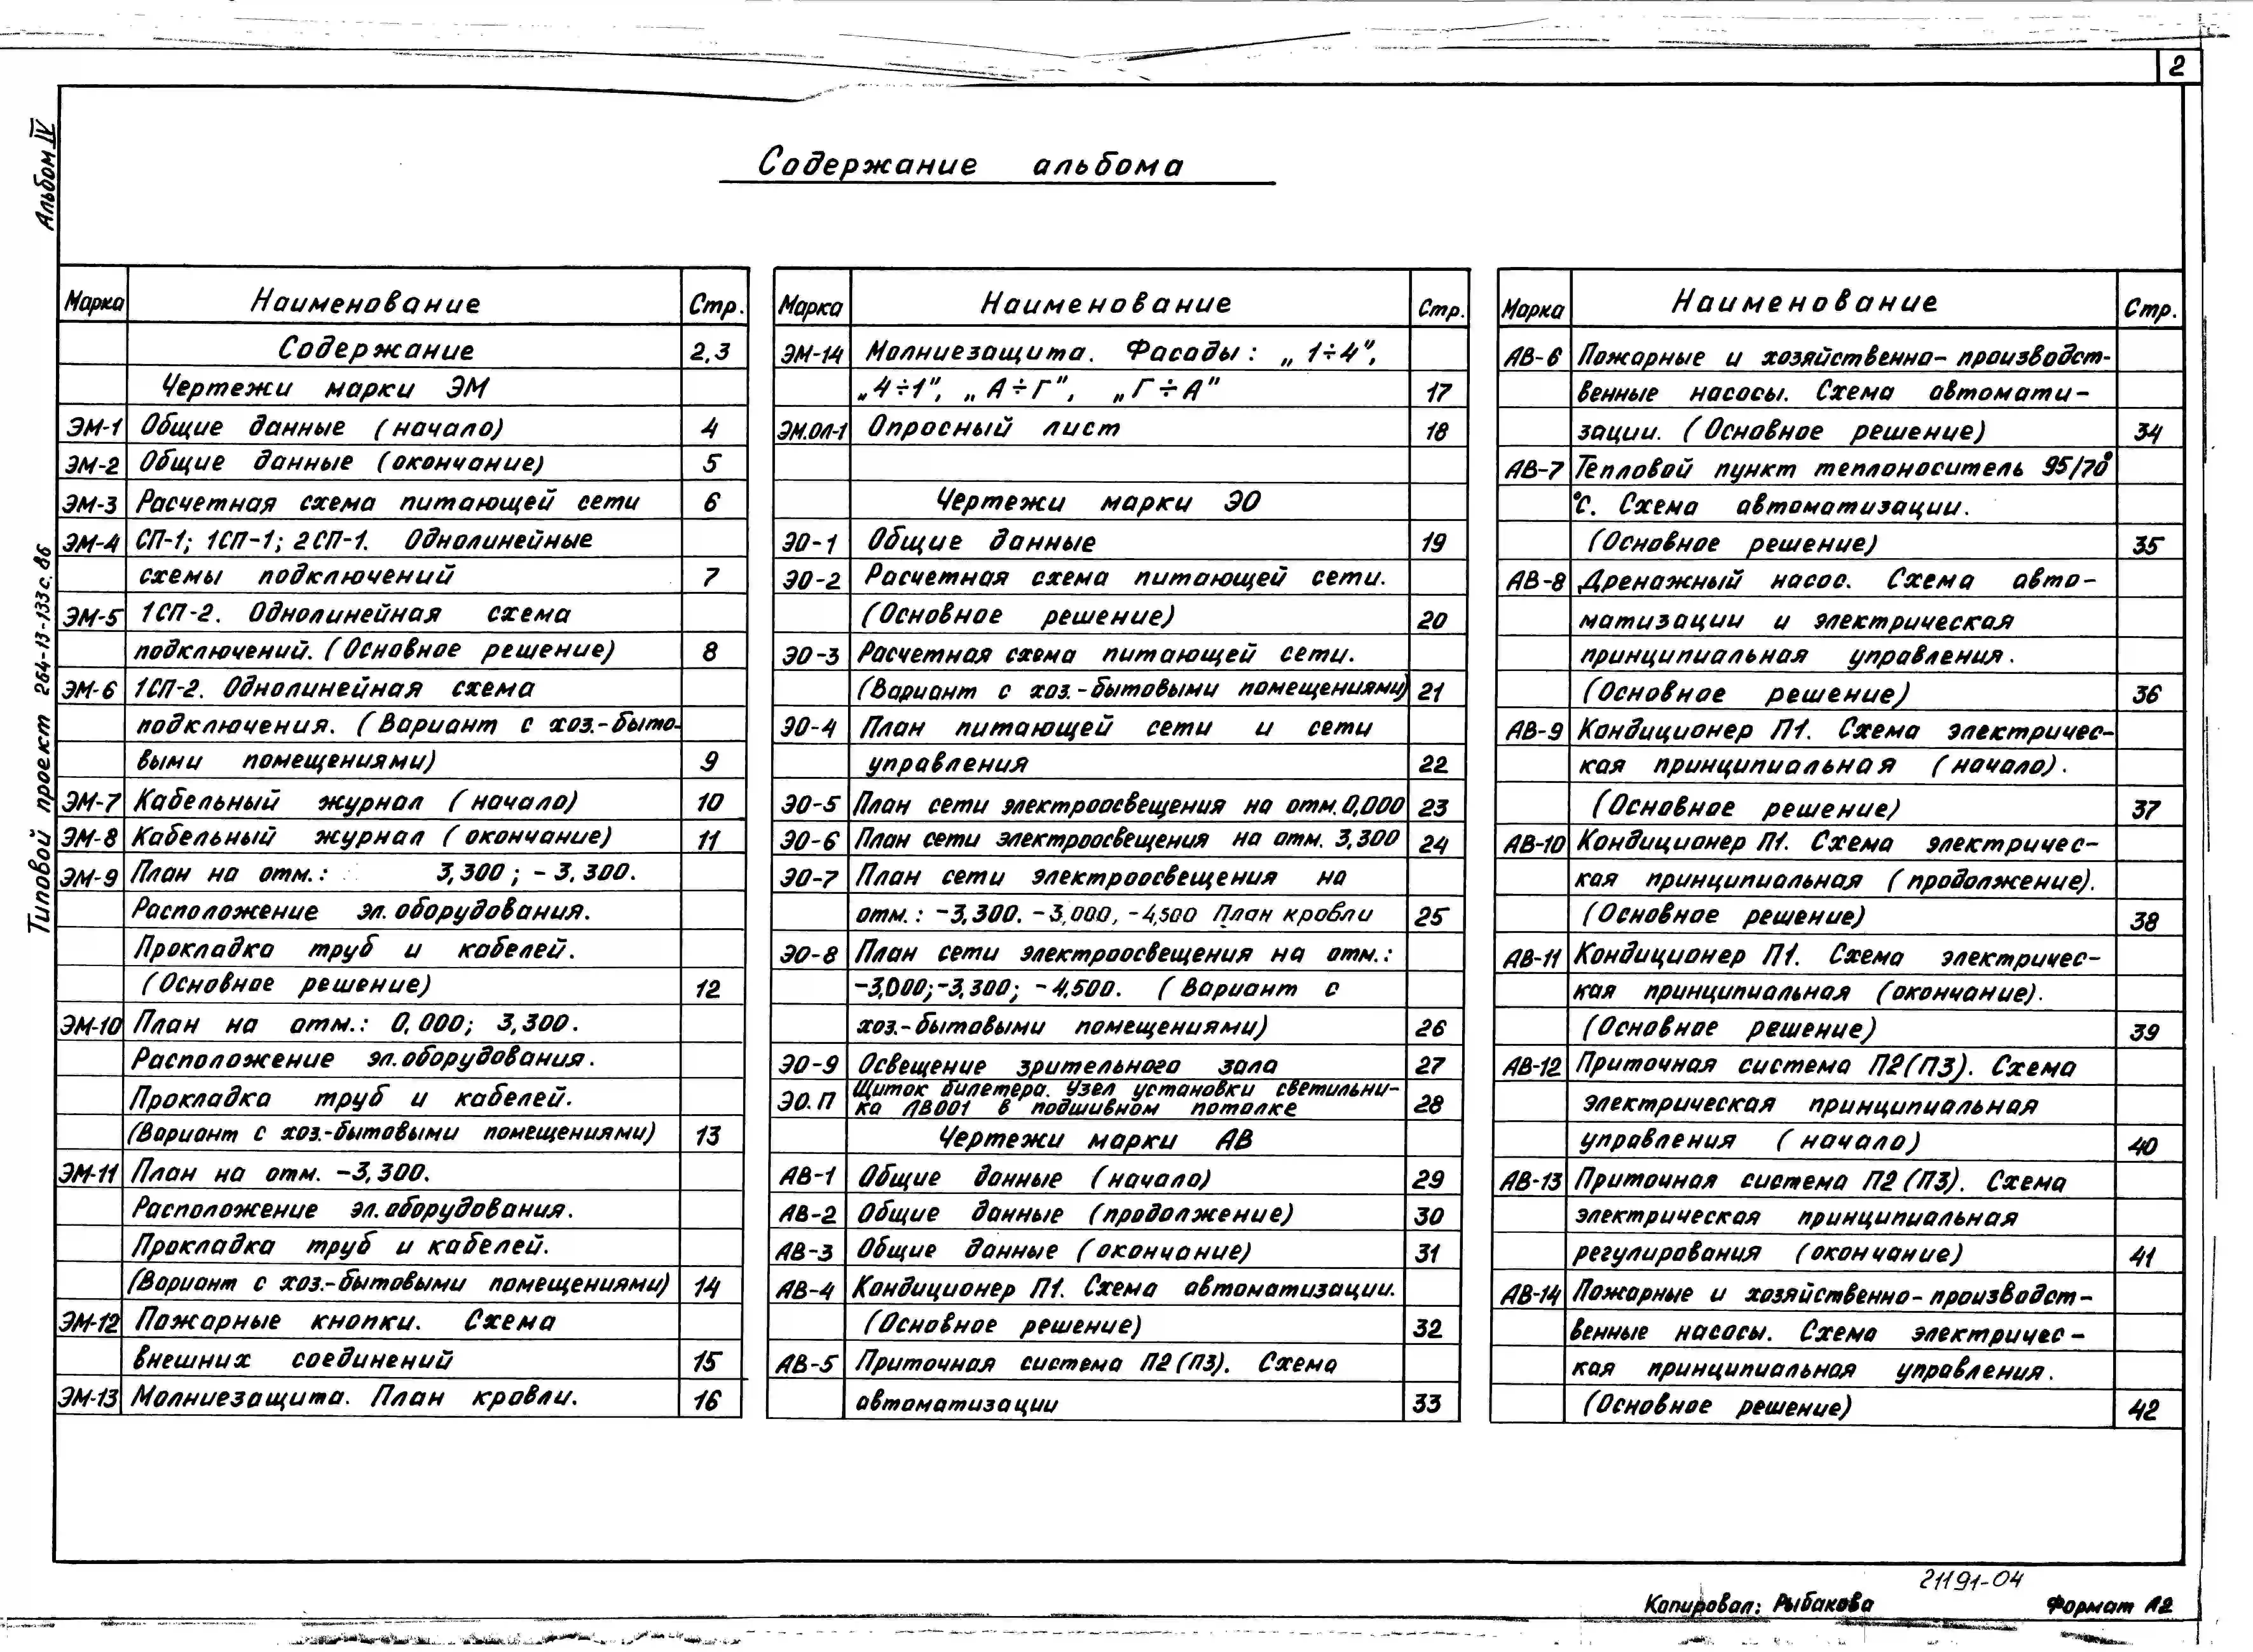 2
Альбом IV
Типовой проект 264-13-133с.86
Содержание альбома
Марка Наименование Стр.
Содержание 2,3
Чертежи марки ЭМ
ЭМ-1 Общие данные (начало) 4
ЭМ-2 Общие данные (окончание) 5
ЭМ-3 Расчетная схема питающей сети 6
ЭМ-4 СП-1; 1СП-1; 2СП-1. Однолинейные
схемы подключений 7
ЭМ-5 1СП-2. Однолинейная схема
подключений. (Основное решение) 8
ЭМ-6 1СП-2. Однолинейная схема
подключения. (Вариант с хоз.-быто-
выми помещениями) 9
ЭМ-7 Кабельный журнал (начало) 10
ЭМ-8 Кабельный журнал (окончание) 11
ЭМ-9 План на отм.: 3,300; -3.300.
Расположение эл. оборудования.
Прокладка труб и кабелей.
(Основное решение) 12
ЭМ-10 План на отм.: 0,000; 3,300.
Расположение эл. оборудования.
Прокладка труб и кабелей.
(Вариант с хоз.-бытовыми помещениями) 13
ЭМ-11 План на отм. -3,300.
Расположение эл. оборудования.
Прокладка труб и кабелей.
(Вариант с хоз.-бытовыми помещениями) 14
ЭМ-12 Пожарные кнопки. Схема
внешних соединений 15
ЭМ-13 Молниезащита. План кровли. 16
Марка Наименование Стр.
ЭМ-14 Молниезащита. Фасады: „1÷4",
„4÷1", „А÷Г", „Г÷А" 17
ЭМ.ОЛ-1 Опросный лист 18
Чертежи марки ЭО
ЭО-1 Общие данные 19
ЭО-2 Расчетная схема питающей сети.
(Основное решение) 20
ЭО-3 Расчетная схема питающей сети.
(Вариант с хоз.-бытовыми помещениями) 21
ЭО-4 План питающей сети и сети
управления 22
ЭО-5 План сети электроосвещения на отм. 0,000 23
ЭО-6 План сети электроосвещения на отм. 3,300 24
ЭО-7 План сети электроосвещения на
отм.: -3,300. -3,000, -4,500 План кровли 25
ЭО-8 План сети электроосвещения на отм.:
-3,000; -3,300; -4,500. (Вариант с
хоз.-бытовыми помещениями) 26
ЭО-9 Освещение зрительного зала 27
ЭО.П Щиток билетера. Узел установки светильни-
ка ЛВ001 в подшивном потолке 28
Чертежи марки АВ
АВ-1 Общие данные (начало) 29
АВ-2 Общие данные (продолжение) 30
АВ-3 Общие данные (окончание) 31
АВ-4 Кондиционер П1. Схема автоматизации.
(Основное решение) 32
АВ-5 Приточная система П2(П3). Схема
автоматизации 33
Марка Наименование Стр.
АВ-6 Пожарные и хозяйственно-производст-
венные насосы. Схема автомати-
зации. (Основное решение) 34
АВ-7 Тепловой пункт теплоноситель 95/70°
°С. Схема автоматизации.
(Основное решение) 35
АВ-8 Дренажный насос. Схема авто-
матизации и электрическая
принципиальная управления.
(Основное решение) 36
АВ-9 Кондиционер П1. Схема электричес-
кая принципиальная (начало).
(Основное решение) 37
АВ-10 Кондиционер П1. Схема электричес-
кая принципиальная (продолжение).
(Основное решение) 38
АВ-11 Кондиционер П1. Схема электричес-
кая принципиальная (окончание).
(Основное решение) 39
АВ-12 Приточная система П2(П3). Схема
электрическая принципиальная
управления (начало) 40
АВ-13 Приточная система П2(П3). Схема
электрическая принципиальная
регулирования (окончание) 41
АВ-14 Пожарные и хозяйственно-производст-
венные насосы. Схема электричес-
кая принципиальная управления.
(Основное решение) 42
21191-04
Копировал: Рыбакова Формат А2